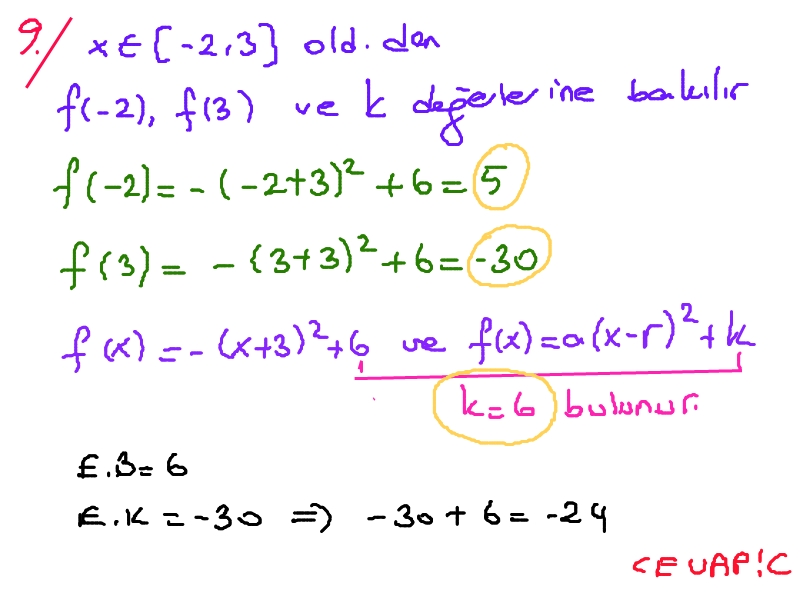 9./ x ∈ [-2,3] old. dan
f(-2), f(3) ve k değerlerine bakılır
f(-2) = -(-2+3)² + 6 = 5
f(3) = -(3+3)² + 6 = -30
f(x) = -(x+3)² + 6 ve f(x) = a(x-r)² + k
k = 6 bulunur.
E.B = 6
E.K = -30 ⇒ -30 + 6 = -24
CEVAP: C